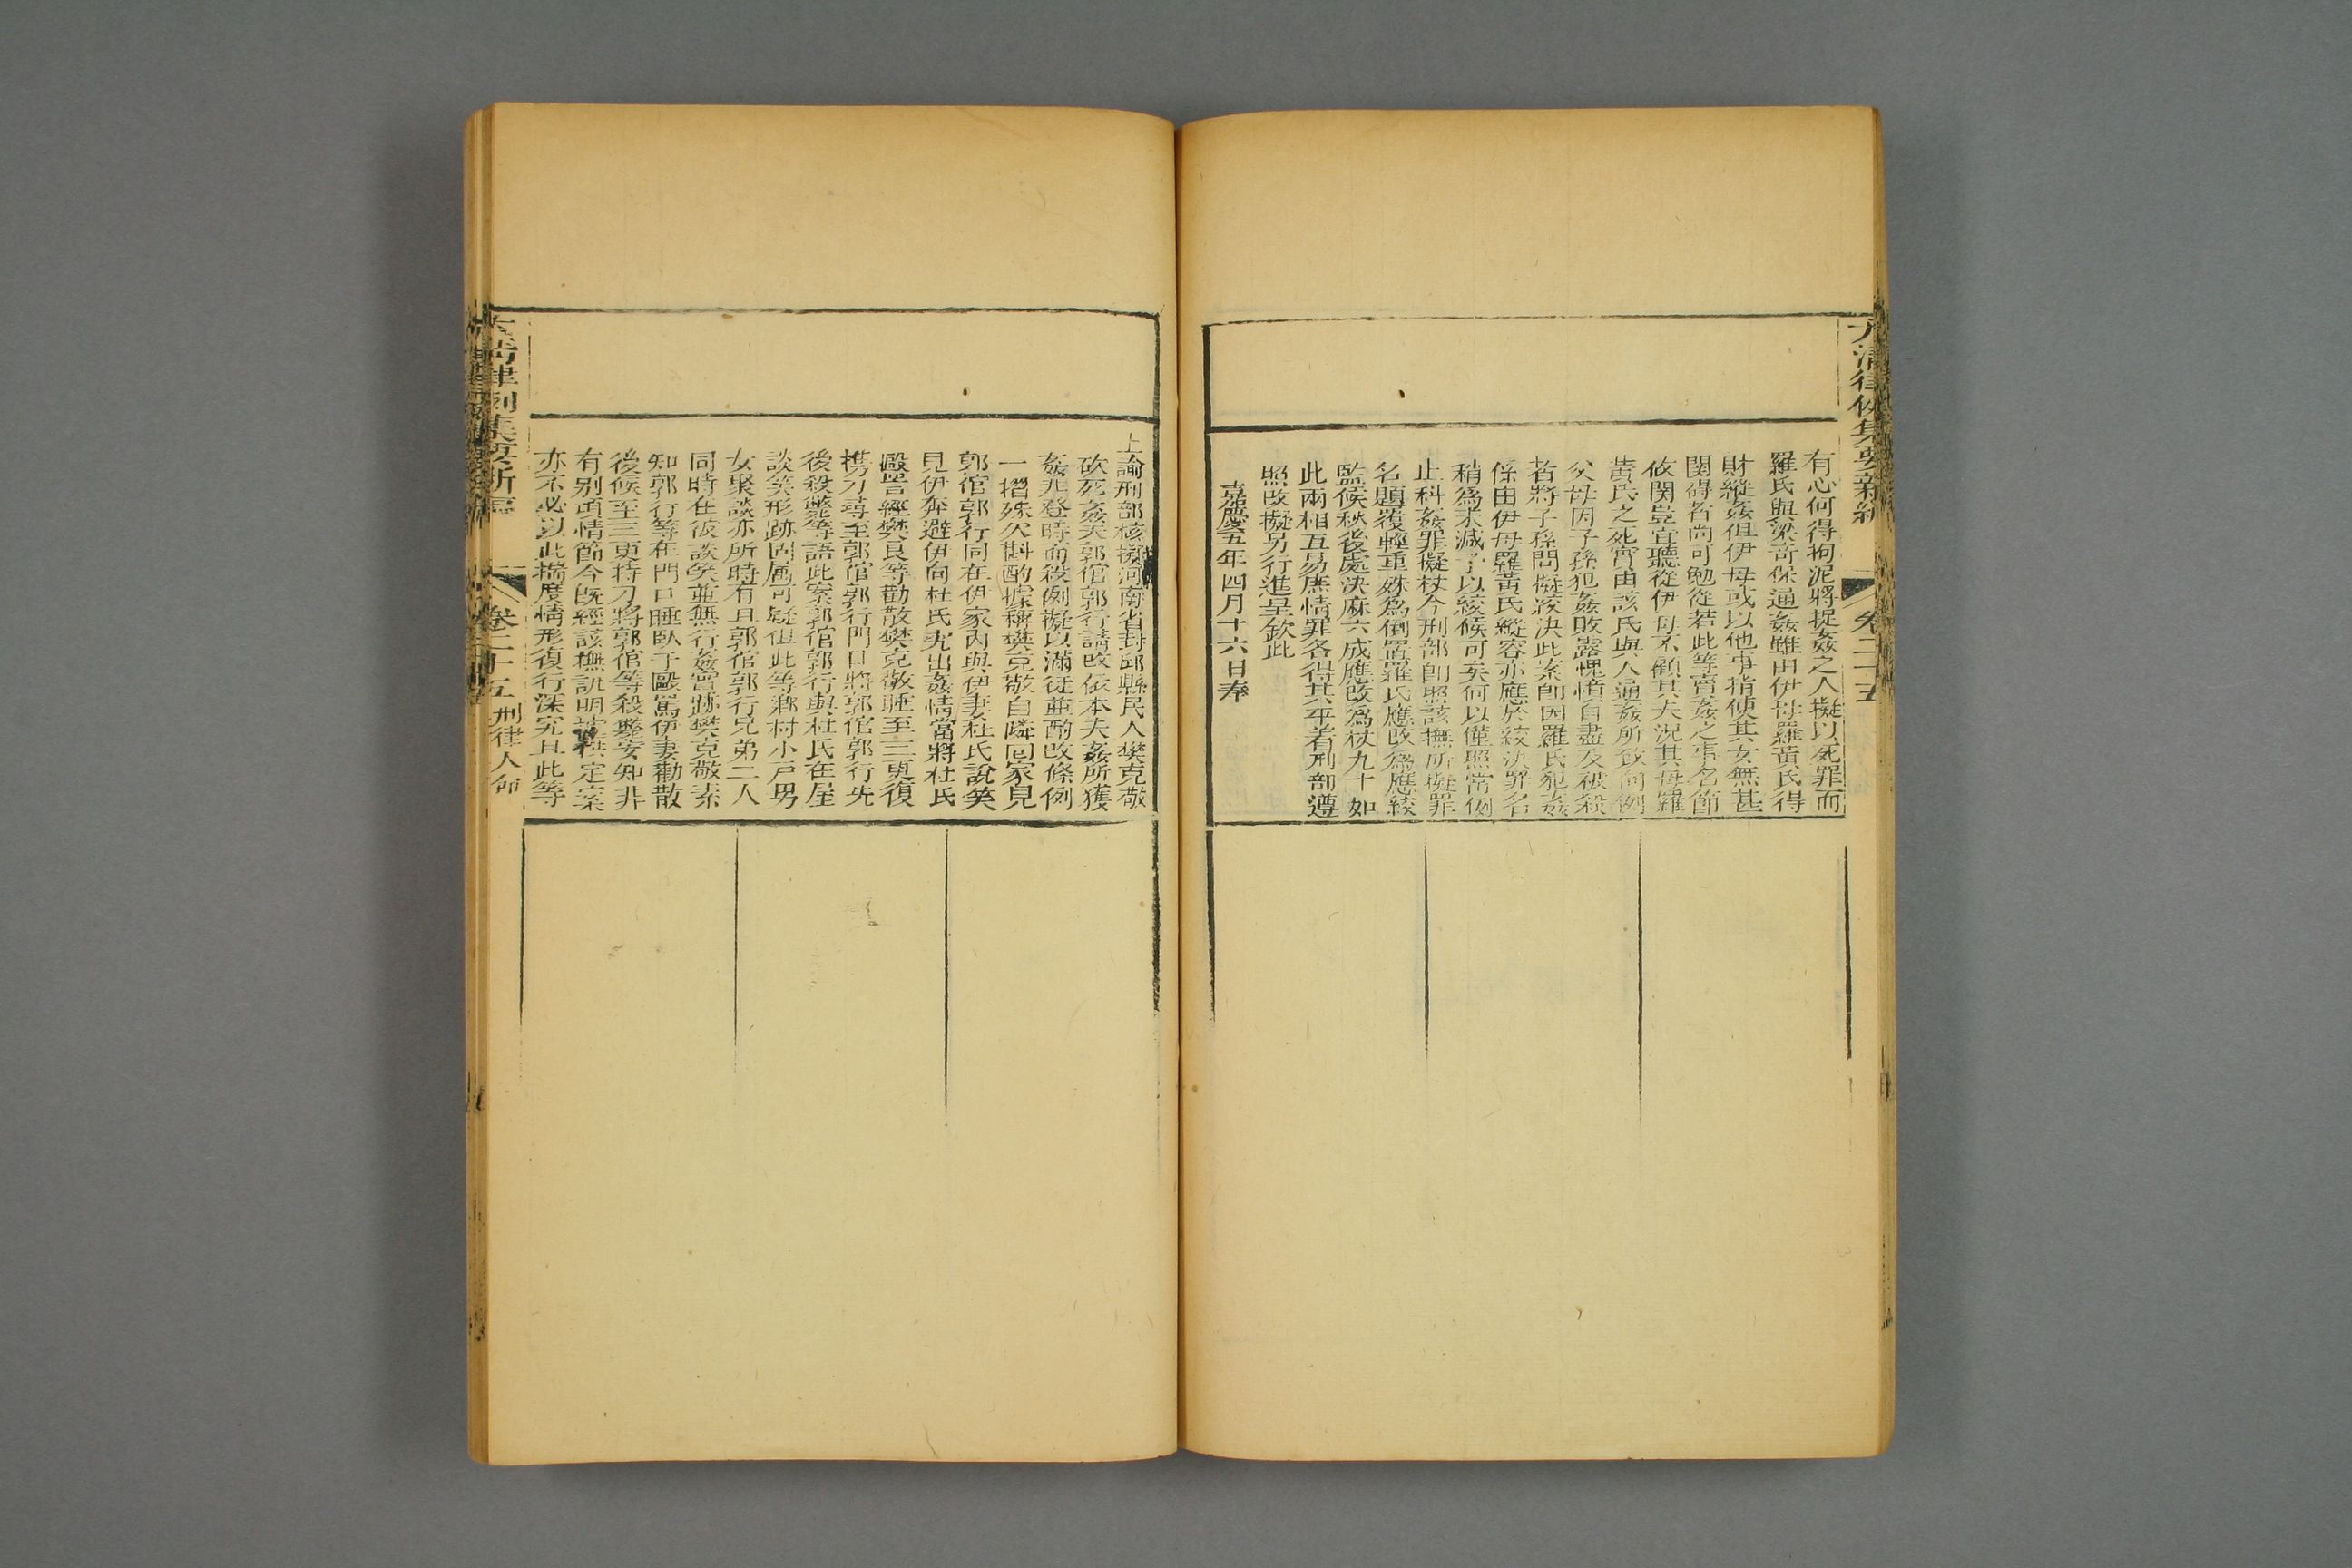 大清律例集要新編
卷二十五
有心何得拘泥將捉姦之人擬以死罪而
羅氏與梁奇保通姦雖由伊母羅黃氏得
財縱姦但伊母或以他事指使其女無甚
関碍者尚可勉從若此等賣姦之事名節
攸関豈宜聽從伊母不顧其夫況其母羅
黃氏之死實由該氏與人通姦所致向例
父母因子孫犯姦敗露愧憤自盡及被殺
者將子孫問擬絞決此案即因羅氏犯姦
係由伊母羅黃氏縱容亦應於絞決罪名
稍爲末減予以絞候可矣何以僅照常例
止科姦罪擬杖今刑部即照該撫所擬罪
名題覆輕重殊爲倒置羅氏應改爲應絞
監候秋後處決麻六成應改爲杖九十如
此兩相互易庶情罪各得其平着刑部遵
照改擬另行進呈欽此
嘉慶五年四月十六日奉
上諭刑部核擬河南省封邱縣民人樊克敬
砍死姦夫郭倌郭行請改依本夫姦所獲
姦非登時而殺例擬以滿徒並酌改條例
一摺殊欠斟酌據稱樊克敬自隣回家見
郭倌郭行同在伊家內與伊妻杜氏說笑
見伊奔避伊向杜氏究出姦情當將杜氏
毆詈經樊良等勸散樊克敬睡至三更復
携刀尋至郭倌郭行門口將郭倌郭行先
後殺斃等語此案郭倌郭行與杜氏在屋
談笑形跡固属可疑但此等鄉村小戸男
女聚談亦所時有且郭倌郭行兄弟二人
同時在彼談笑並無行姦實跡樊克敬素
知郭行等在門口睡臥于毆駡伊妻勸散
後候至三更持刀將郭倌等殺斃安知非
有别項情節今既經該撫訊明定案
亦不必以此揣度情形復行深究且此等
大清律例集要新編
卷二十五刑律人命